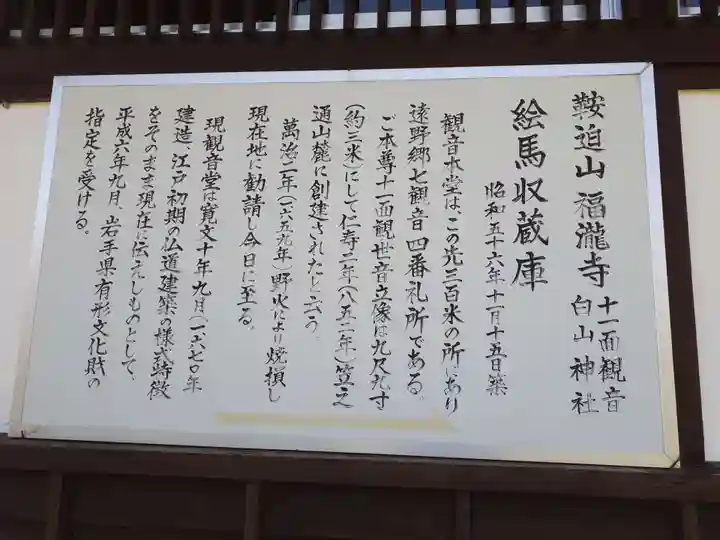 鞍迫山 福瀧寺
十一面観音
白山神社
絵馬収蔵庫
昭和五十六年十一月十五日築
観音本堂はこの先三百米の所にあり
遠野郷七観音四番札所である。
ご本尊十一面観世音立像は九尺九寸
(約三米)にして仁寿二年(八五二年)笠之
通山麓に創建されたと云う。
萬治二年(一六五九年)野火により焼損し
現在地に勧請し今日に至る。
現観音堂は寛文十年九月(一、六七〇年
建造、江戸初期の仏道建築の様式特徴
をそのまま現在に伝えしものとして、
平成六年九月、岩手県有形文化財の
指定を受ける。